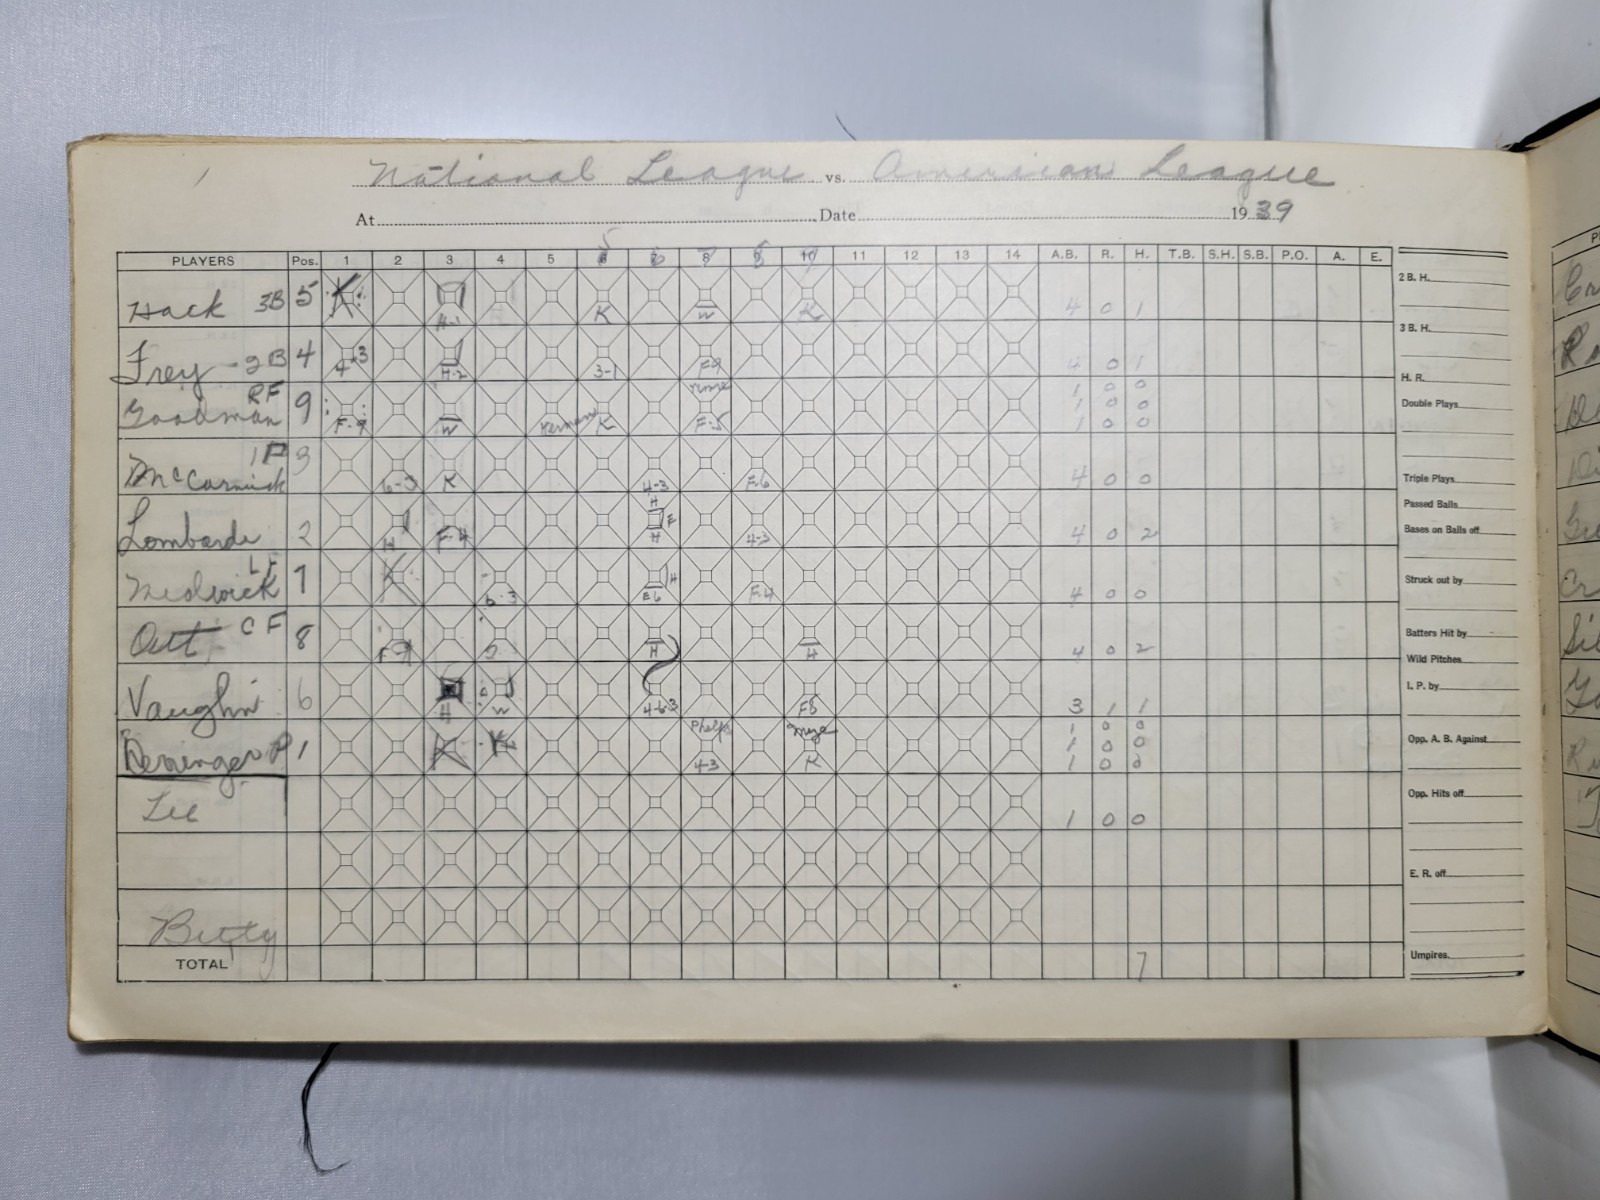 1
National League vs. American League
At Date 1939
5
PLAYERS Pos. 1 2 3 4 5 6 6 7 8 9 10 11 12 13 14 A.B. R. H. T.B. S.H. S.B. P.O. A. E.
Hack 3B 5 K H-1 K W K 4 0 1
2 B. H.
3 B. H.
Frey - 2B 4 4-3 H-2 3-1 F9 4 0 1
H. R.
Goodman RF 9 F-9 W Herman K F-5 1 0 0
1 0 0
1 0 0
Double Plays
McCormick 3 6-3 K 4-3 F6 4 0 0
Triple Plays
Passed Balls
Lombardi 2 H F-4 H E H 4-3 4 0 2
Bases on Balls off
Medwick LF 7 K 6-3 E6 H F-4 4 0 0
Struck out by
Ott CF 8 F-9 H H 4 0 2
Batters Hit by
Wild Pitches
Vaughn 6 H W 4-6-3 F8 3 1 1
I. P. by
P 1 K K Phelps 4-3 K 1 0 0
1 0 0
1 0 0
Opp. A. B. Against
Lee 1 0 0
Opp. Hits off
E. R. off
TOTAL 7
Umpires